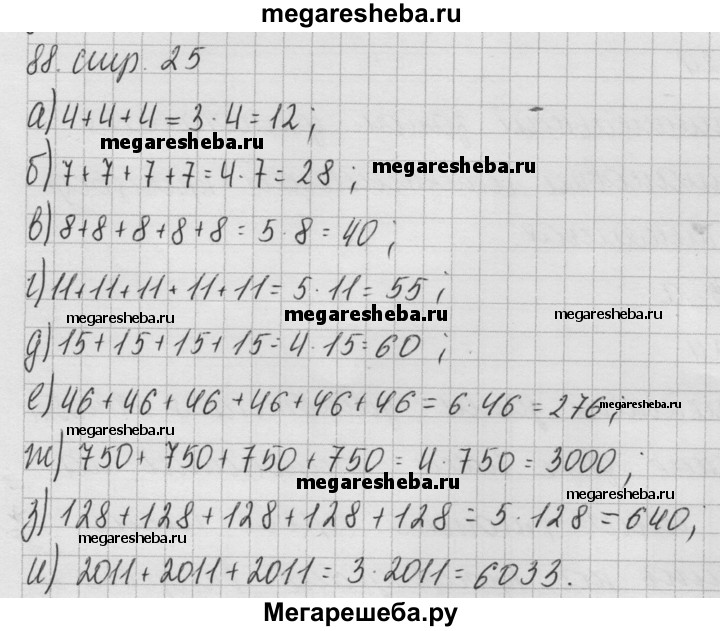 megaresheba.ru
88. стр. 25
а) 4+4+4 = 3·4 = 12;
megaresheba.ru
б) 7+7+7+7 = 4·7 = 28; megaresheba.ru
в) 8+8+8+8+8 = 5·8 = 40;
г) 11+11+11+11+11 = 5·11 = 55;
megaresheba.ru megaresheba.ru megaresheba.ru
д) 15+15+15+15 = 4·15 = 60;
е) 46+46+46+46+46+46 = 6·46 = 276; megaresheba.ru
megaresheba.ru
ж) 750+750+750+750 = 4·750 = 3000;
megaresheba.ru megaresheba.ru
з) 128+128+128+128+128 = 5·128 = 640;
megaresheba.ru
и) 2011+2011+2011 = 3·2011 = 6033.
Мегарешеба.ру